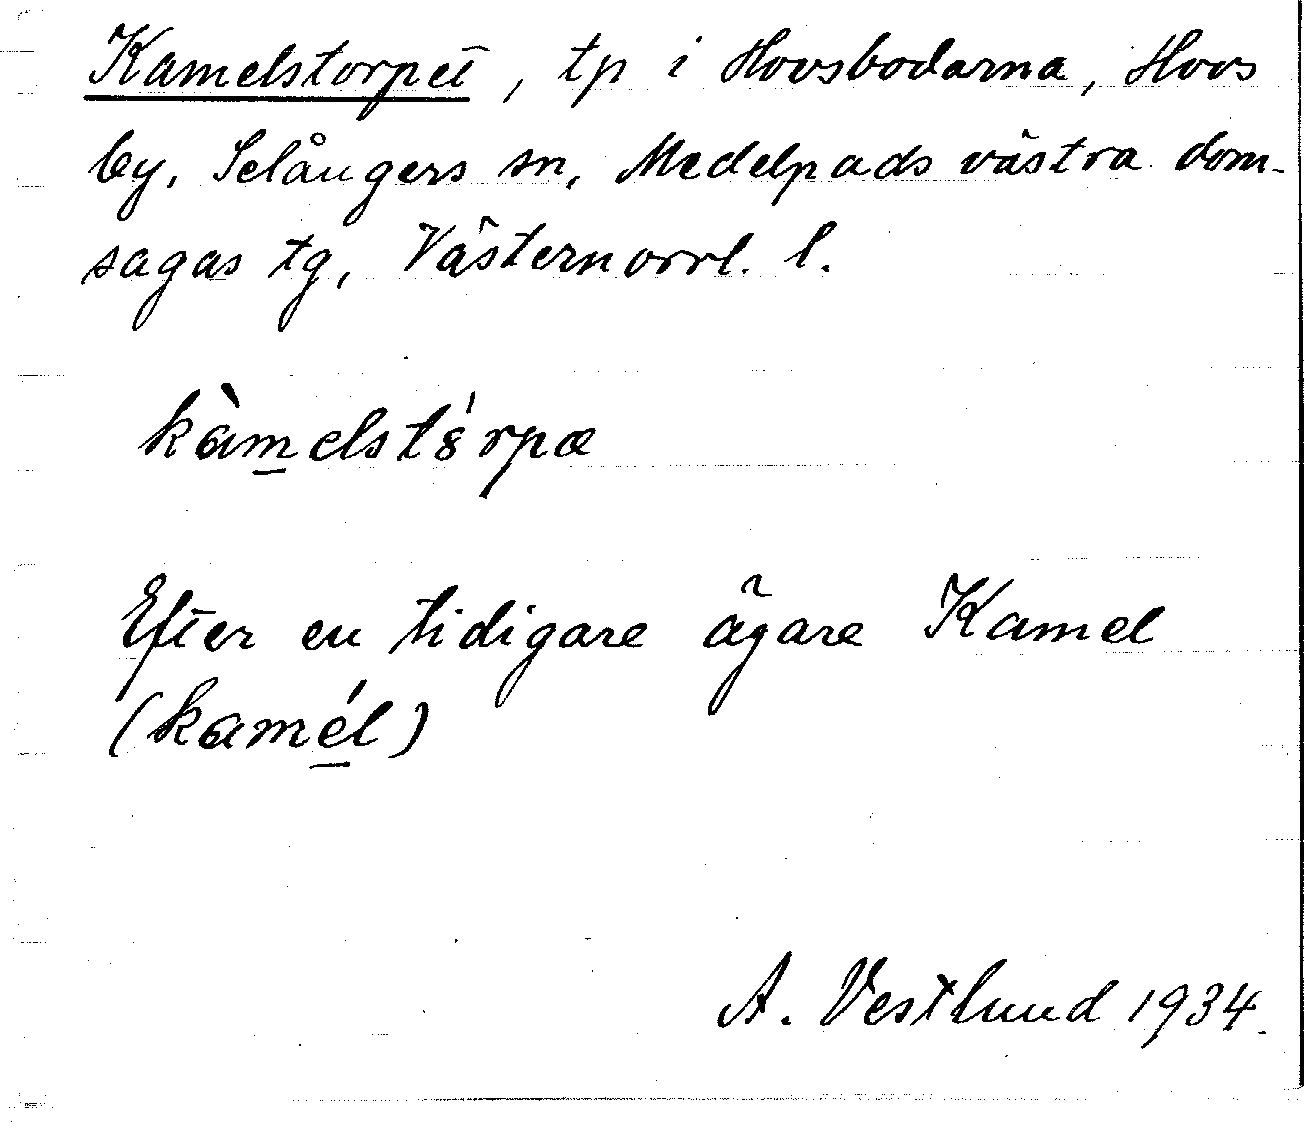 Kamelstorpet, tp i Hovsbodarna, Hovs
by, Selångers sn, Medelpads västra dom-
sagas tg, Västernorrl. l.
kàm̲elstȣ́rpæ
Efter en tidigare ägare Kamel
(kamé̲l)
A. Vestlund 1934.